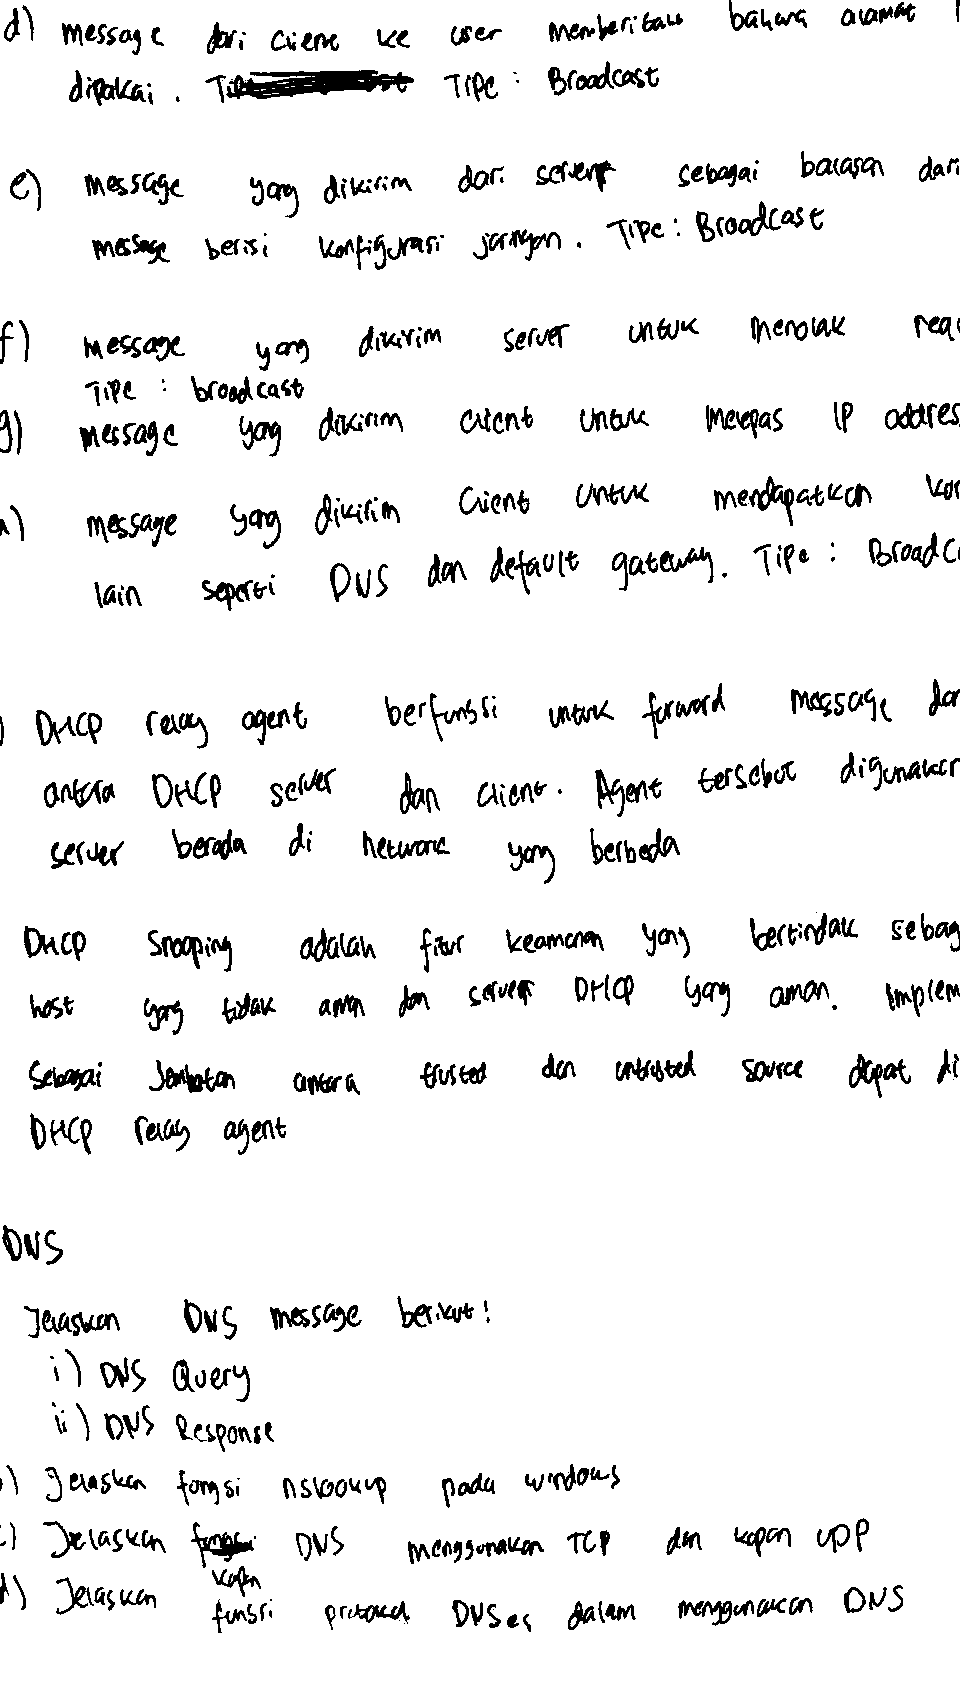 d) message dari client ke user memberitahu bahwa alamat
dipakai. Tipe : Broadcast
e) message yang dikirim dari server sebagai balasan dari
message berisi konfigurasi jaringan. Tipe : Broadcast
f) message yang dikirim server untuk menolak requ
Tipe : broadcast
g) message yang dikirim client untuk melepas IP addres
message yang dikirim client untuk mendapatkan kon
lain seperti DNS dan default gateway. Tipe : Broadca
) DHCP relay agent berfungsi untuk forward message dar
antara DHCP server dan client. Agent tersebut digunakan
server berada di network yang berbeda
DHCP Snooping adalah fitur keamanan yang bertindak sebag
host yang tidak aman dan server DHCP yang aman. Implem
Sebagai Jembatan antara trusted dan untrusted source dapat di
DHCP relay agent
DNS
Jelaskan DNS message berikut!
i) DNS Query
ii) DNS Response
) Jelaskan fungsi nslookup pada windows
c) Jelaskan kapan DNS menggunakan TCP dan kapan UDP
d) Jelaskan fungsi protokol DNSsec dalam menggunakan DNS